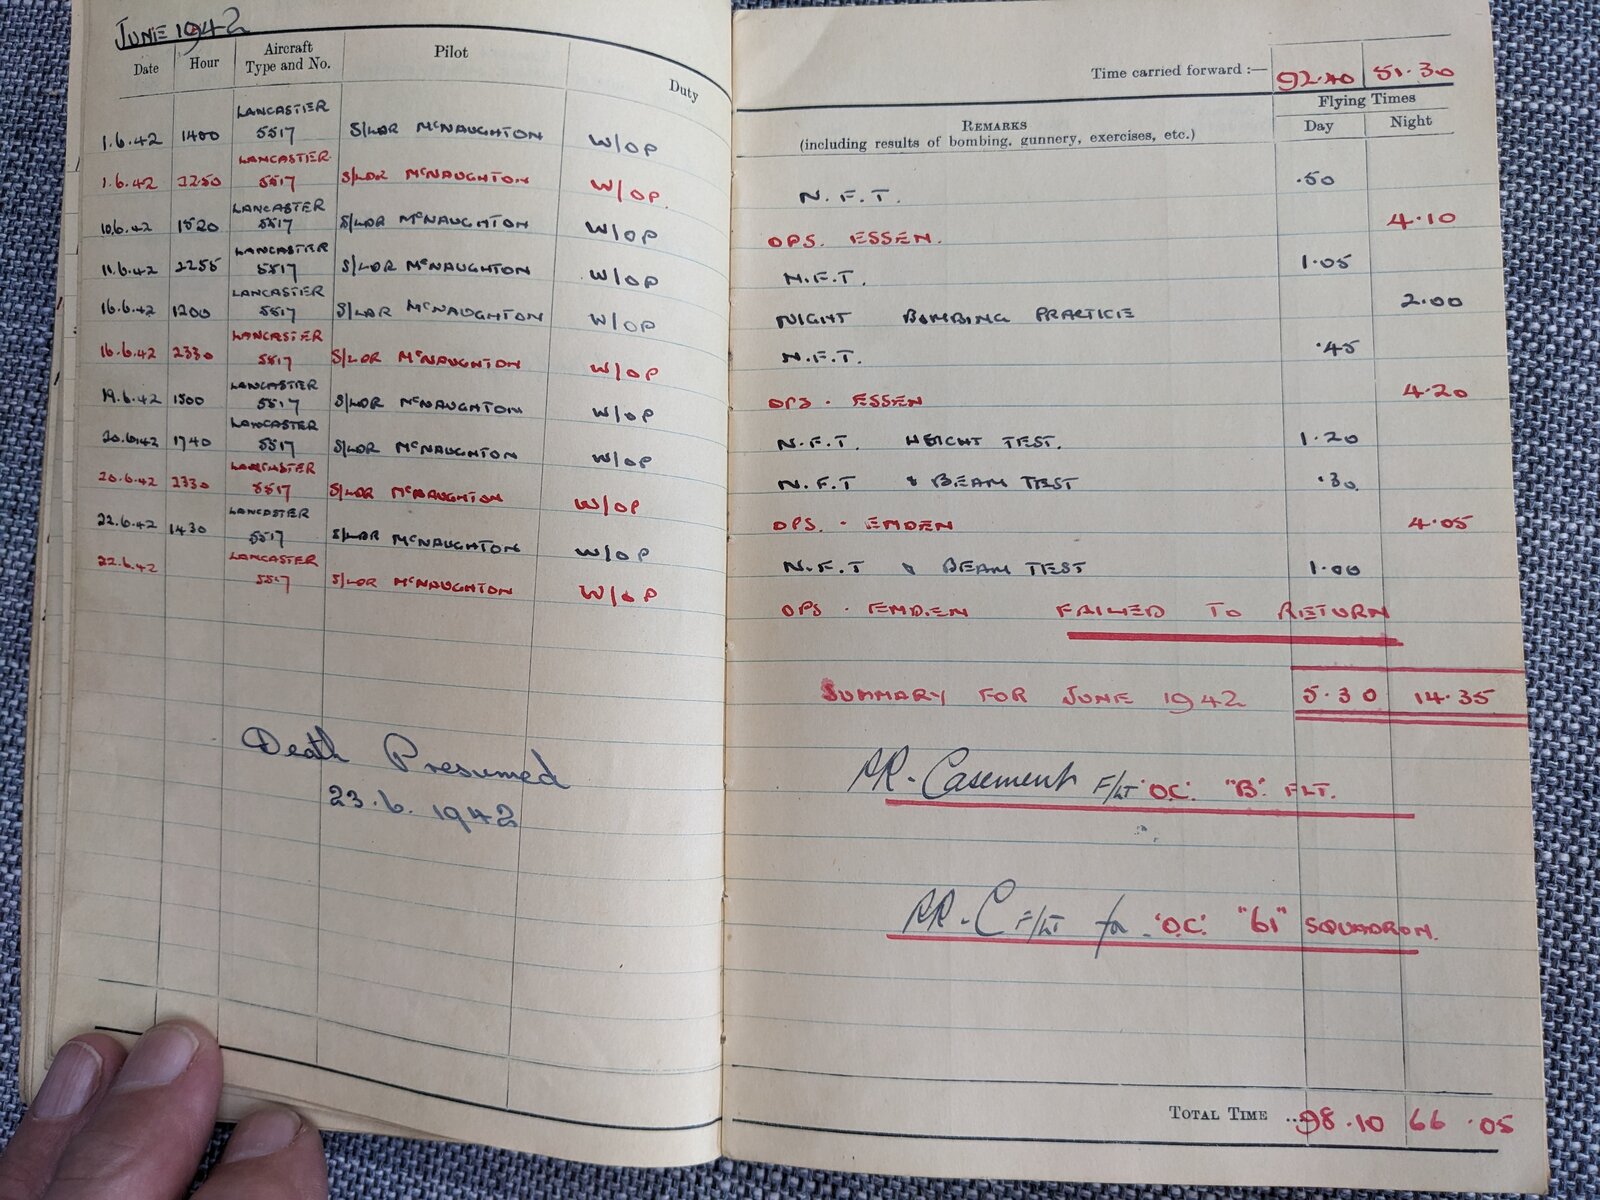 JUNE 1942
Date Hour Aircraft Type and No. Pilot Duty
1.6.42 1400 LANCASTER 5517 S/LDR McNAUGHTON W/OP
1.6.42 2250 LANCASTER 5517 S/LDR McNAUGHTON W/OP.
10.6.42 1520 LANCASTER 5517 S/LDR McNAUGHTON W/OP
11.6.42 2255 LANCASTER 5517 S/LDR McNAUGHTON W/OP
16.6.42 1200 LANCASTER 5517 S/LDR McNAUGHTON W/OP
16.6.42 2330 LANCASTER 5517 S/LDR McNAUGHTON W/OP
19.6.42 1500 LANCASTER 5517 S/LDR McNAUGHTON W/OP
20.6.42 1740 LANCASTER 5517 S/LDR McNAUGHTON W/OP
20.6.42 2330 LANCASTER 5517 S/LDR McNAUGHTON W/OP
22.6.42 1430 LANCASTER 5517 S/LDR McNAUGHTON W/OP
22.6.42 LANCASTER 5517 S/LDR McNAUGHTON W/OP
Death Presumed
23.6.1942
Time carried forward :— 92.40 51.30
Flying Times
REMARKS Day Night
(including results of bombing, gunnery, exercises, etc.)
N.F.T. .50
OPS. ESSEN. 4.10
N.F.T. 1.05
NIGHT BOMBING PRACTICE 2.00
N.F.T. .45
OPS. ESSEN 4.20
N.F.T. HEIGHT TEST. 1.20
N.F.T & BEAM TEST .30
OPS. EMDEN 4.05
N.F.T & BEAM TEST 1.00
OPS. EMDEN FAILED TO RETURN
SUMMARY FOR JUNE 1942 5.30 14.35
PR. Casement F/LT 'OC' "B" FLT.
PR. C F/LT for 'OC' "61" SQUADRON.
TOTAL TIME ... 98.10 66.05